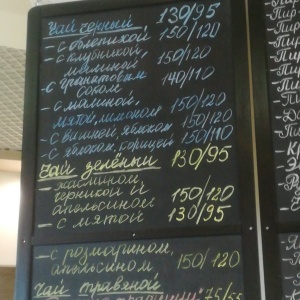 Чай черный 130/95
- с облепихой 150/120
- с клубникой,
малиной 150/120
- с гранатовым
соком 140/110
- с малиной,
мятой, лимоном 150/120
- с вишней, яблоком 150/120
- с яблоком, корицей 150/110
Чай зелёный 130/95
- жасмином,
черникой и
апельсином 150/120
- с мятой 130/95
- с розмарином,
апельсином 150/120
Чай травяной